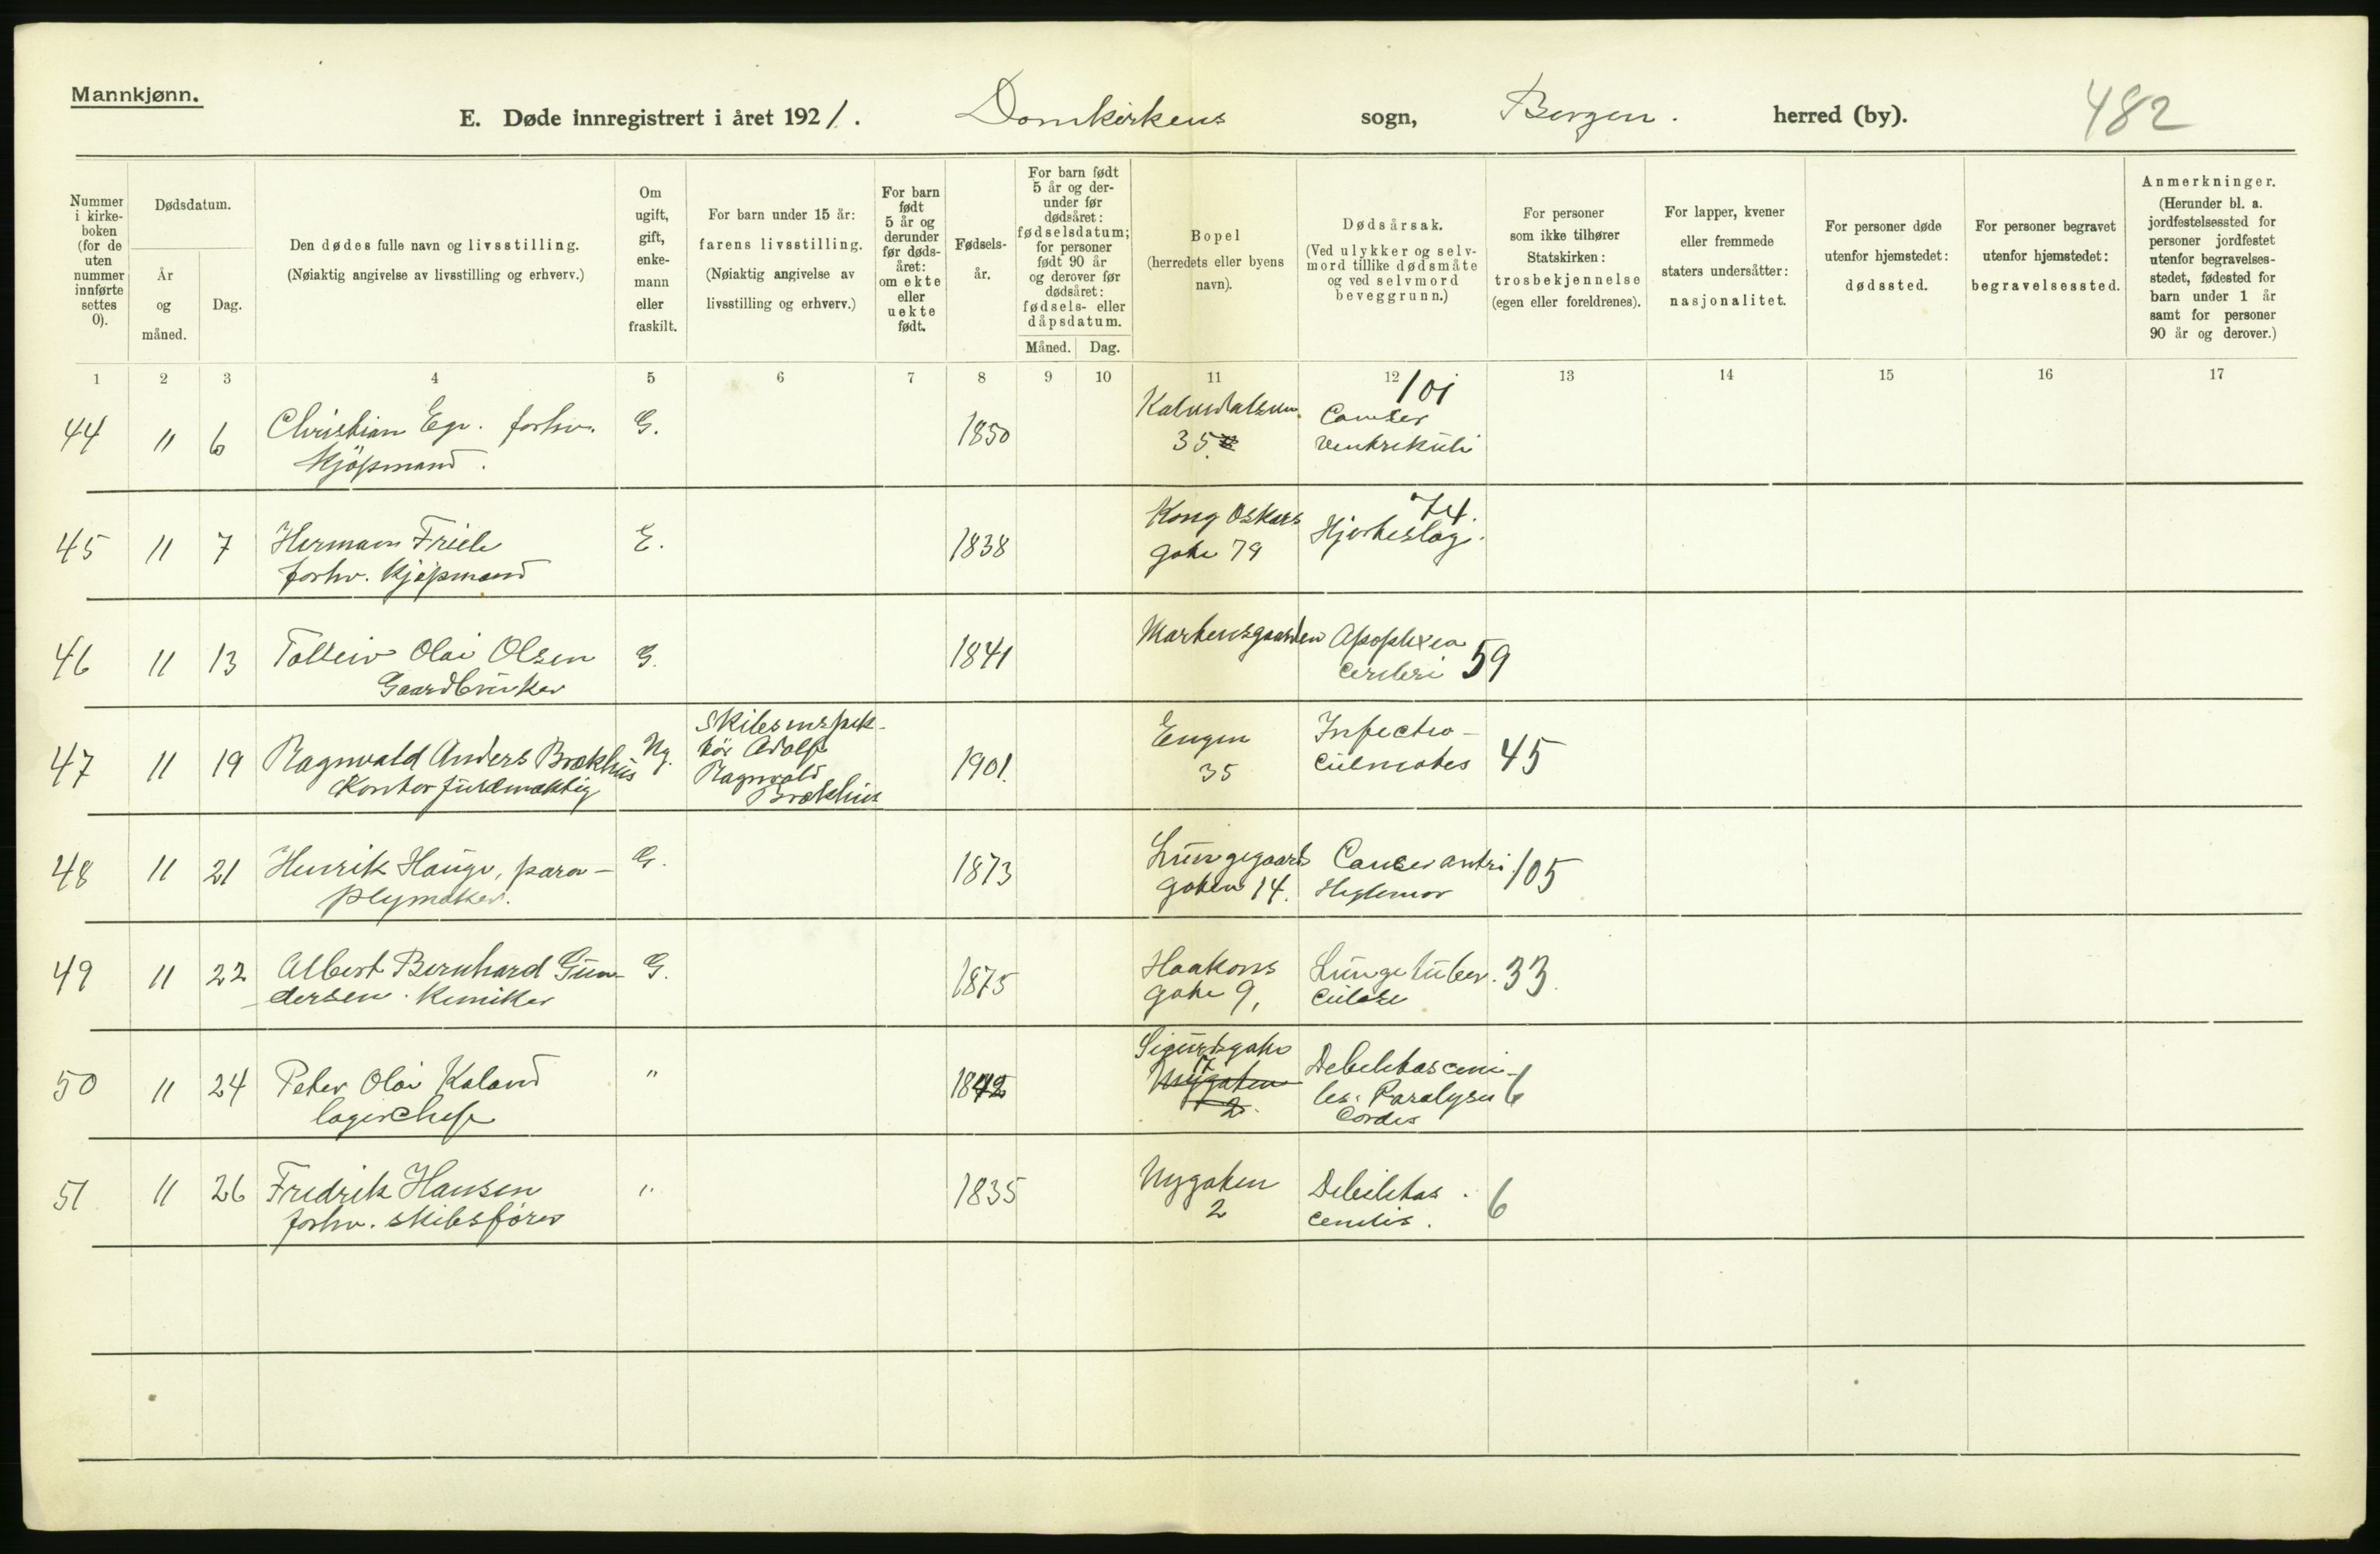 Mannkjønn.
E. Døde innregistrert i året 1921. Domkirkens sogn, Bergen. herred (by). 482
Nummer i kirke-boken (for de uten nummer innførte settes 0).
Dødsdatum.
År og måned.
Dag.
Den dødes fulle navn og livsstilling.
(Nøiaktig angivelse av livsstilling og erhverv.)
Om ugift, gift, enke-mann eller fraskilt.
For barn under 15 år:
farens livsstilling.
(Nøiaktig angivelse av livsstilling og erhverv.)
For barn født 5 år og derunder før døds-året: om ekte eller uekte født.
Fødsels-år.
For barn født 5 år og der-under før dødsåret: fødselsdatum; for personer født 90 år og derover før dødsåret: fødsels- eller dåpsdatum.
Måned. Dag.
Bopel
(herredets eller byens navn).
Dødsårsak.
(Ved ulykker og selv-mord tillike dødsmåte og ved selvmord beveggrunn.)
For personer som ikke tilhører Statskirken: trosbekjennelse (egen eller foreldrenes).
For lapper, kvener eller fremmede staters undersåtter: nasjonalitet.
For personer døde utenfor hjemstedet: dødssted.
For personer begravet utenfor hjemstedet: begravelsessted.
Anmerkninger.
(Herunder bl. a. jordfestelsessted for personer jordfestet utenfor begravelses-stedet, fødested for barn under 1 år samt for personer 90 år og derover.)
1 2 3 4 5 6 7 8 9 10 11 12 13 14 15 16 17
44 " 6 Christian Ege. forhv. G. 1850 Kalvedalsvn. 101 Canser
Kjöpmand. 35. ventrikuli
45 11 7 Herman Friele E. 1838 Kong Oskars 74.
forhv. Kjöpmand gate 79 Hjerteslag.
46 11 13 Tolleiv Olai Olsen G. 1841 Markusgaarden Apoplexia
Gaardbruker cerebri 59
47 11 19 Ragnvald Anders Brækhus Ug. Skibsinspek- 1901. Engen Infectio-
Kontorfuldmæktig tör Adolf 35 culmotes 45
Ragnvald
Brækhus
48 11 21 Henrik Hauge, para- G. 1873 Lungegaards Canser antri 105
plymaker. gaten 14. Higlemor
49 11 22 Albert Bernhard Gun- G. 1875 Haakons Lungetuber. 33.
dersen. Kemiker gate 9, culose
50 11 24 Peter Olai Kaland " 1842 Sigurdsgate Debilitas ceni-
lagerchef Nygaten 2. les. Paralysu 6
Cordis
51 11 26 Fredrik Hansen " 1835 Nygaten Debilitas. 6
forhv. skibsförer 2 cenilis.